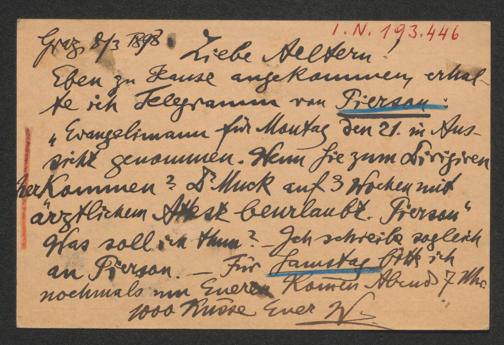 I. N. 193.446
Graz, 8/3 1898
Liebe Aeltern!
Eben zu Hause angekommen, erhal-
te ich Telegramm von Pierson:
„Evangelimann für Montag den 21. in Aus-
sicht genommen. Wenn Sie zum Dirigiren
her kommen? Dr Muck auf 3 Wochen mit
ärztlichem Attest beurlaubt. Pierson"
Was soll ich thun? – Ich schreibe sogleich
an Pierson. – Für Samstag bitte ich
nochmals um Euer Kommen Abend 7 Uhr.
1000 Küsse Euer W.